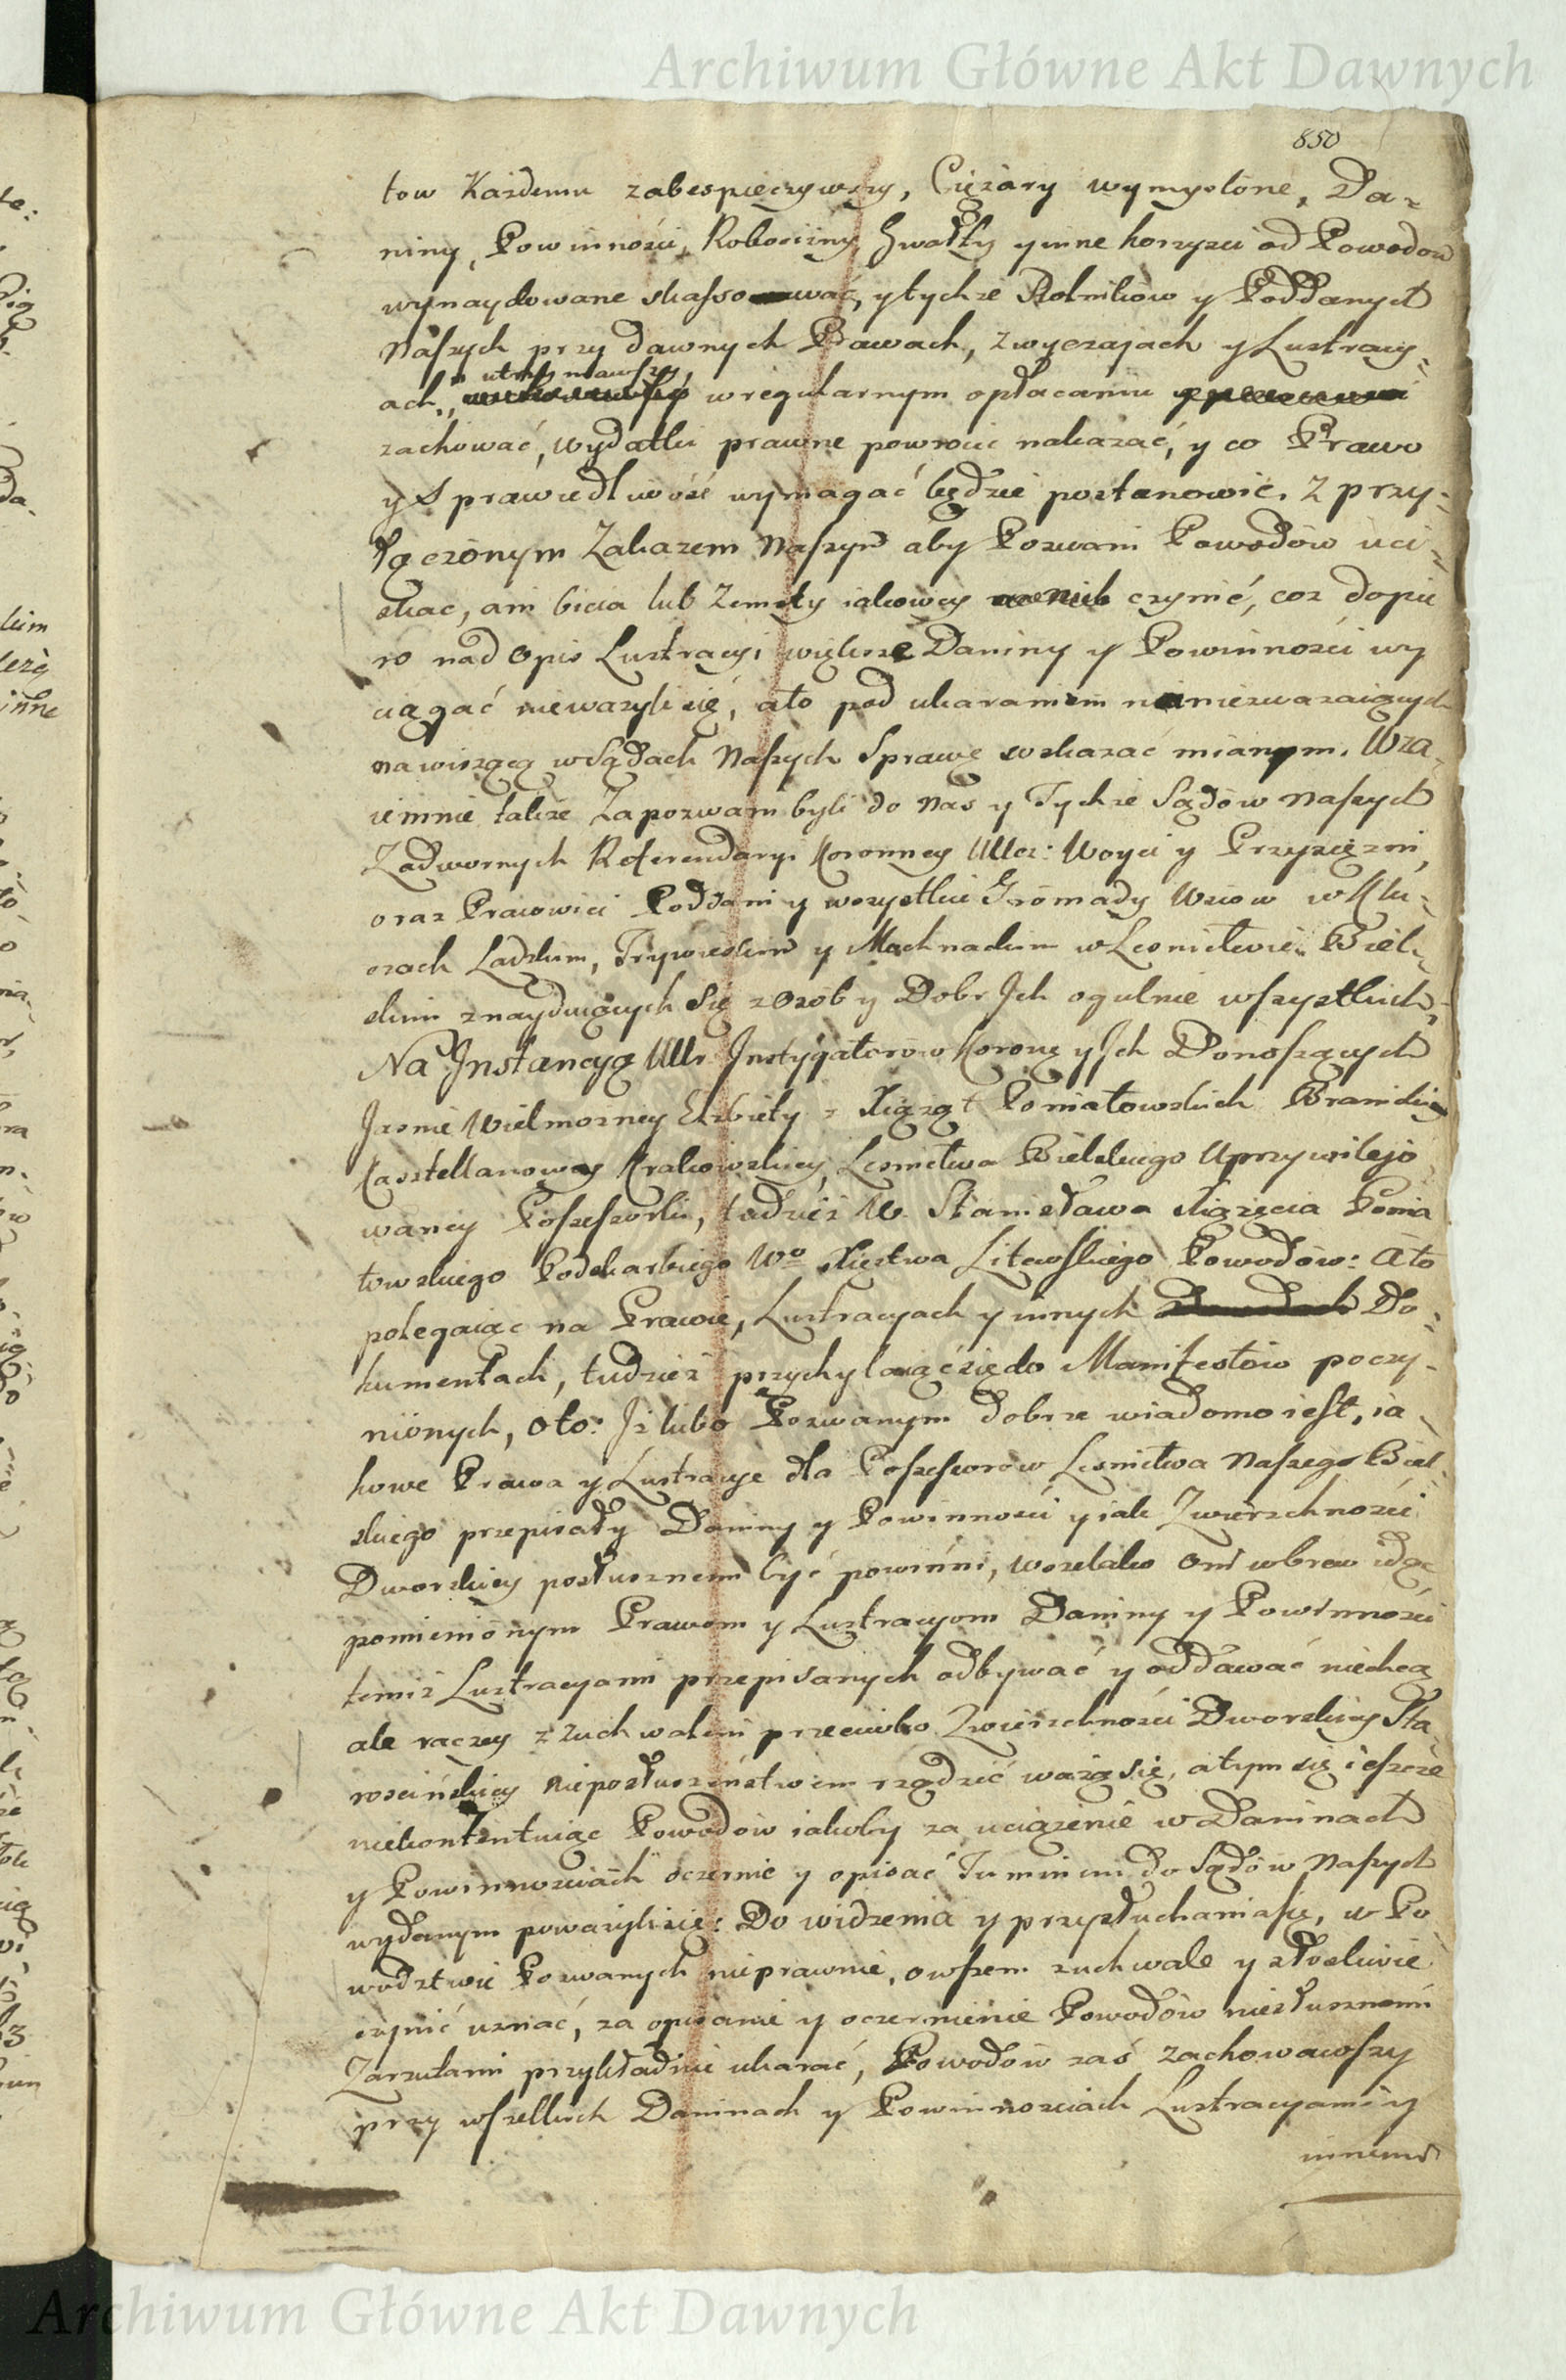 Archiwum Główne Akt Dawnych
850
tow Każdemu zabespieczywszy, Ciężary wymyślone, Da-
niny, Powinności, Robocizny Gwałty y inne korzyści od Powodow
wynaydowane skassować, y tychże Rolników y Poddanych
Naszych przy dawnych Prawach, zwyczajach y Lustracy-
ach, utrzymawszy w regularnym opłacaniu
zachować, wydatki prawne powrocic nakazać, y co Prawo
y Sprawiedliwość wymagać będzie postanowic. Z przy-
łączonym Zakazem Naszym aby Pozwani Powodów uci-
skac, ani bicia lub Zemsty iakowey czynić, coż dopie
ro nad Opis Lustracyi większe Daniny y Powinności wy
ciągać nieważyli się, a to pod ukaraniem
na wiszącą w Sądach Naszych Sprawę wskazać mianym. Wza-
iemnie także Zapozwani byli do Nas y Tychże Sądów Naszych
Zadwornych Referendaryi Koronney Uczc: Woyci y Przysiężni,
oraz Pracowici Poddani y wszystkie Gromady Wsiow w Klu-
czach Ladzkim, Trywieskim y Machnackim w Lesnictwie Biel-
skim znayduiących się z Osob y Dobr Ich ogulnie wszystkich,
Na Instancyą Ur Instygatorów Koroną y Ich Donoszących
Jaśnie Wielmożney Elżbiety z Xiążąt Poniatowskich Branickiey
Kasztellanowey Krakowskiey, Lesnictwa Bielskiego Uprzywilejo
waney Possessorki, tudzież W. Stanisława Xiążęcia Ponia
towskiego Podskarbiego Wo Xięstwa Litewskiego Powodów: A to
polegaiąc na Prawie, Lustracyach y innych Do-
kumentach, tudzież przychylaiąc się do Manifestów poczy-
nionych, oto: Iż lubo Pozwanym dobrze wiadomo iest, ia
kowe Prawa y Lustracye dla Possessorow Lesnictwa Naszego Biel-
skiego przepisały Daniny y Powinności y iak Zwierzchności
Dworskiey posłusznemi być powinni, wszelako oni wbrew idąc
pomienionym Prawom y Lustracyom Daniny y Powinności
temiż Lustracyami przepisanych odbywać y oddawać niechcą
ale raczey z zuchwałem przeciwko Zwierzchności Dworskiey Sta-
rościńskiey nieposłuszeństwem rządzić ważą się, a tym się ieszcze
niekontentuiąc Powodów iakoby za uciążenie w Daninach
y Powinnościach oczernic y opisać Tuminem do Sądów Naszych
wydanym poważyli się: Do widzenia y przysłuchania się, w Po
wodztwie Pozwanych nieprawnie, owszem zuchwale y złosliwie
czynić uznać, za opisanie y oczernienie Powodów niesłusznemi
Zarzutami przykładnie ukarać, Powodów zaś zachowawszy
przy wszelkich Daninach y Powinnościach Lustracyami y
innemi
Archiwum Główne Akt Dawnych